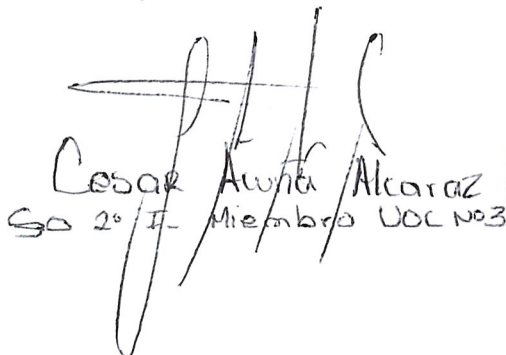 Cesar Acuña Alcaraz
SO 2º I- Miembro UOC Nº3